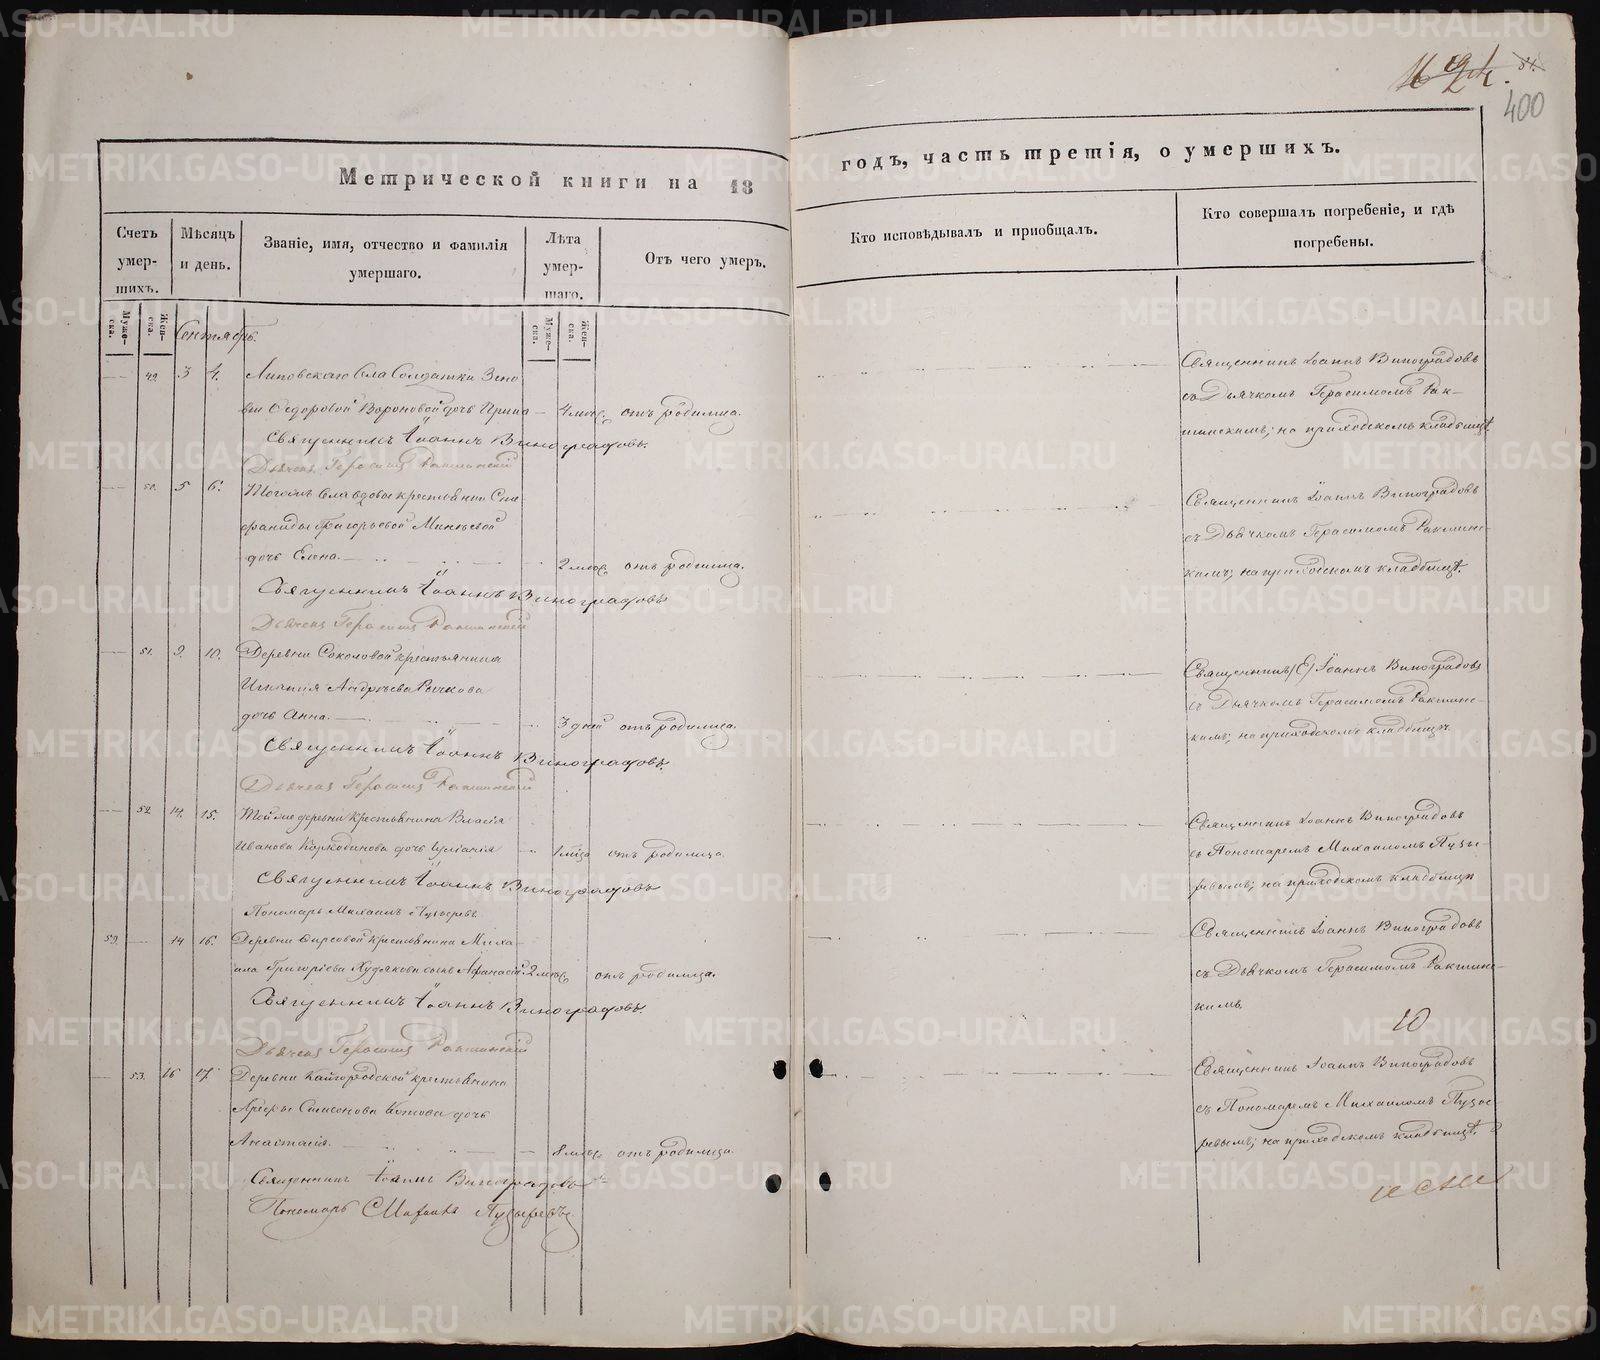 400
Метрической книги на 18
годъ, часть третія, о умершихъ.
Счетъ умер-
шихъ.
Мѣсяцъ
и день.
Званіе, имя, отчество и фамилія
умершаго.
Лѣта
умер-
шаго.
Отъ чего умеръ.
Кто исповѣдывалъ и приобщалъ.
Кто совершалъ погребеніе, и гдѣ
погребены.
Муже-
ска.
Жен-
ска.
Муже-
ска.
Жен-
ска.
Сентябрь.
49. 3 4. Липовскаго Села Солдатки Зино
віи Ѳедоровой Вороновой дочь Ирина 4 мѣс. отъ родимца.
Священникъ Іоаннъ Виноградовъ.
Дьячекъ Герасимъ Ракшинскій
Священникъ Іоаннъ Виноградовъ
съ Дьячкомъ Герасимомъ Рак-
шинскимъ; на приходскомъ кладбищѣ
50. 5 6. Тогожъ Села вдовы крестьянки Сте
фаниды Григорьевой Минѣевой
дочь Елена. 2 мѣс. отъ родимца.
Священникъ Іоаннъ Виноградовъ
Дьячекъ Герасимъ Ракшинскій
Священникъ Іоаннъ Виноградовъ
съ Дьячкомъ Герасимомъ Ракшинс-
кимъ; на приходскомъ кладбищѣ.
51. 9. 10. Деревни Соколовой крестьянина
Игнатія Андреева Рычкова
дочь Анна. 3 дней отъ родимца.
Священникъ Іоаннъ Виноградовъ.
Дьячекъ Герасимъ Ракшинскій
Священникъ Іоаннъ Виноградовъ
съ Дьячкомъ Герасимомъ Ракшинс-
кимъ; на приходскомъ кладбищѣ.
52. 14. 15. Той же деревни крестьянина Власія
Иванова Коркодинова дочь Іуліанія 1 мѣсяца отъ родимца.
Священникъ Іоаннъ Виноградовъ
Пономарь Михаилъ Пузыревъ
Священникъ Іоаннъ Виноградовъ
съ Пономаремъ Михаиломъ Пузы-
ревымъ; на приходскомъ кладбищѣ
59. 14 16. Деревни Фирсовой крестьянина Миха-
ила Григоріева Худякова сынъ Афанасій 2 мѣс. отъ родимца.
Священникъ Іоаннъ Виноградовъ.
Дьячекъ Герасимъ Ракшинскій
Священникъ Іоаннъ Виноградовъ
съ Дьячкомъ Герасимомъ Ракшинс-
кимъ.
10
53. 16 17. Деревни Кайгородской крестьянина
Арефы Самсонова Котова дочь
Анастасія. 8 мѣс. отъ родимца.
Священникъ Іоаннъ Виноградовъ
Пономарь Михаилъ Пузыревъ
Священникъ Іоаннъ Виноградовъ
съ Пономаремъ Михаиломъ Пузы-
ревымъ; на приходскомъ кладбищѣ.
METRIKI.GASO-URAL.RU